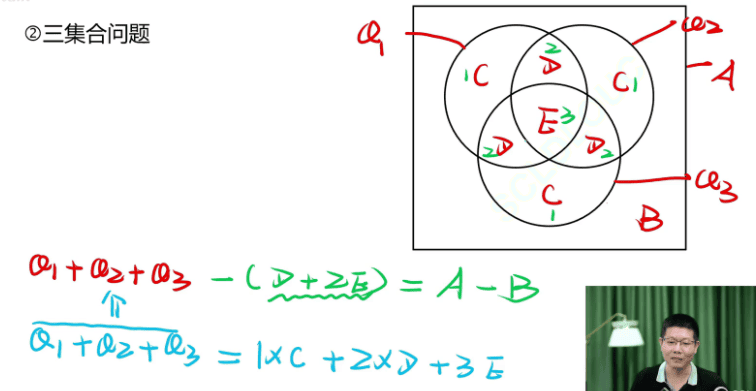 ②三集合问题
a₁
a₂
A
1C
2
D
C1
E3
2D
D2
C
1
a₃
B
a₁+a₂+a₃-(D+2E)=A-B
⇑
a₁+a₂+a₃=1×C+2×D+3E